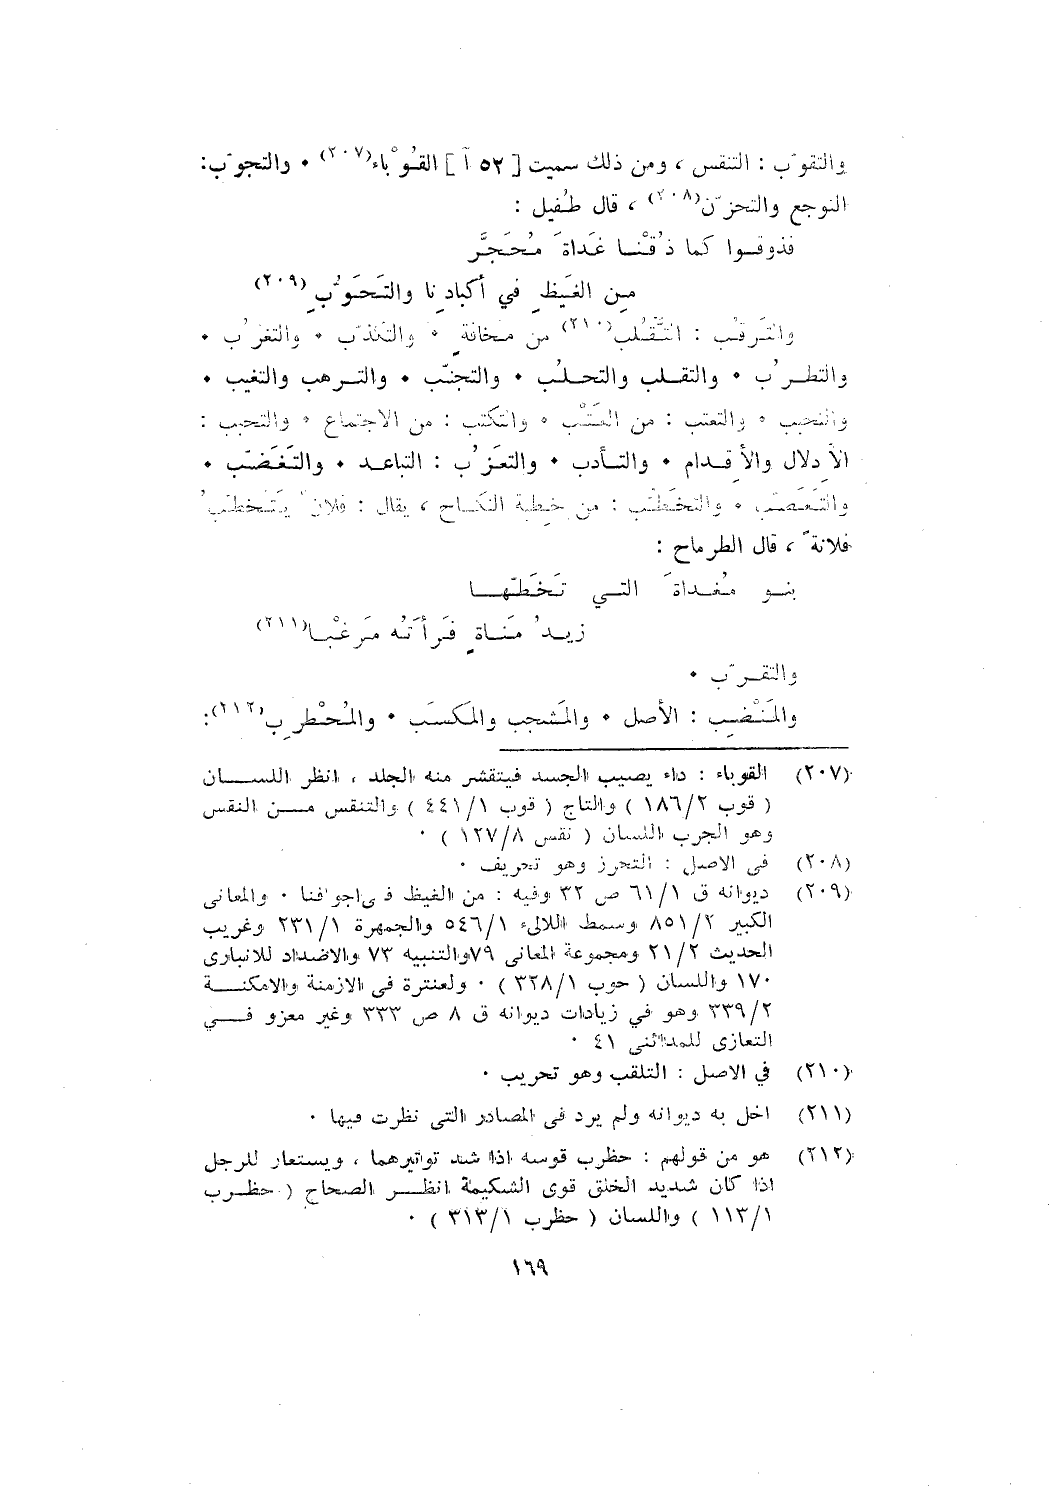 والتقوّب : التنقس ، ومن ذلك سميت [ ٥٢ آ ] القُوْباء(٢٠٧) • والتجوّب:
التوجع والتحزّن(٢٠٨) ، قال طُفيل :
فذوقـوا كما ذُقْنـا غَداةَ مُحَجَّرٍ
مِن الغَيظِ في أكبادِنا والتَحَوُّبِ(٢٠٩)
والتَرقّب : التَّقَلب(٢١٠) من مخافةٍ • والتكذّب • والتغرُب •
والتطـرُب • والتقـلب والتحلـب • والتجنّب • والتـرهب والتغيب •
والتحبب • والتعتب : من العَتْب • والتكتب : من الاجتماع • والتحبب :
الاِدلال والأِقـدام • والتـأدب • والتعَزُب : التباعـد • والتَغَضّب •
والتَعَصّب • والتخَطّب : من خِطبة النكـاح ، يقال : فلانٌ يَتَخطّبُ
فلانةً ، قال الطرماح :
بنـو مُغـداةَ التـي تَخَطّبَهـا
زيـدُ مَنـاةٍ فَرأَتْه مَرغَبْـا(٢١١)
والتقـرّب •
والمَنْصِب : الأصل • والمَشجب والمَكسَب • والمُحْظرِب(٢١٢):
(٢٠٧) القوباء : داء يصيب الجسد فيتقشر منه الجلد ، انظر اللســان
( قوب ١٨٦/٢ ) والتاج ( قوب ٤٤١/١ ) والتنقس مــن النقس
وهو الجرب اللسان ( نقس ١٢٧/٨ ) •
(٢٠٨) فى الاصل : التحرز وهو تحريف •
(٢٠٩) ديوانه ق ٦١/١ ص ٣٢ وفيه : من الغيظ فى اجوافنا • والمعانى
الكبير ٨٥١/٢ وسمط اللالىء ٥٤٦/١ والجمهرة ٢٣١/١ وغريب
الحديث ٢١/٢ ومجموعة المعانى ٧٩والتنبيه ٧٣ والاضداد للانبارى
١٧٠ واللسان ( حوب ٣٢٨/١ ) • ولعنترة فى الازمنة والامكنــة
٣٣٩/٢ وهو في زيادات ديوانه ق ٨ ص ٣٣٣ وغير معزو فــي
التعازى للمدائنى ٤١ •
(٢١٠) في الاصل : التلقب وهو تحريب •
(٢١١) اخل به ديوانه ولم يرد فى المصادر التى نظرت فيها •
(٢١٢) هو من قولهم : حظرب قوسه اذا شد تواتيرهما ، ويستعار للرجل
اذا كان شديد الخلق قوى الشكيمة انظــر الصحاح ( حظــرب
١١٣/١ ) واللسان ( حظرب ٣١٣/١ ) •
١٦٩